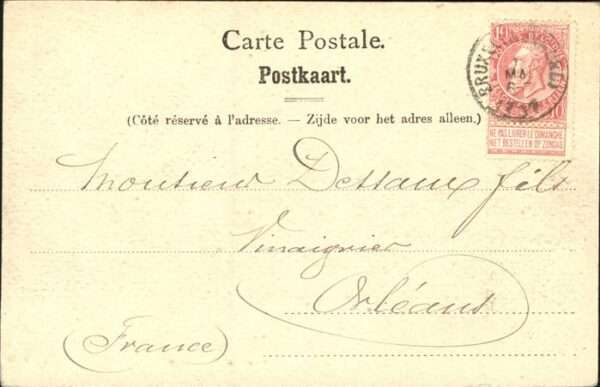 Carte Postale.
Postkaart.
(Côté réservé à l'adresse. — Zijde voor het adres alleen.)
10
10
BRUX
MAI
NE PAS LIVRER LE DIMANCHE
NIET BESTELLEN OP ZONDAG
Monsieur Dessaux fils
Vinaigrier
Orléans
(France)